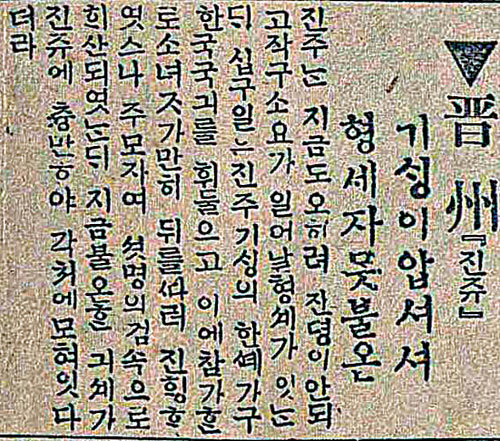 ▼晋州『진쥬』
기싱이압셔셔
형세자못불온
진주는 지금도오히려 잔뎡이안되
고작구소요가 일어날형셰가 잇는
듸 십구일는진주기싱의 한쎼가구
한국국긔를 휘둘으고 이에참가ᄒᆞᆫ
로소녀ᄌᆞ가만히 뒤를ᄯᅡ러 진힝ᄒᆞ
엿스나 주모자여 셧명의검속으로
희산되엿는듸 지금불온ᄒᆞᆫ 긔셰가
진쥬에 츙만ᄒᆞ야 각쳐에모혀잇다
더라